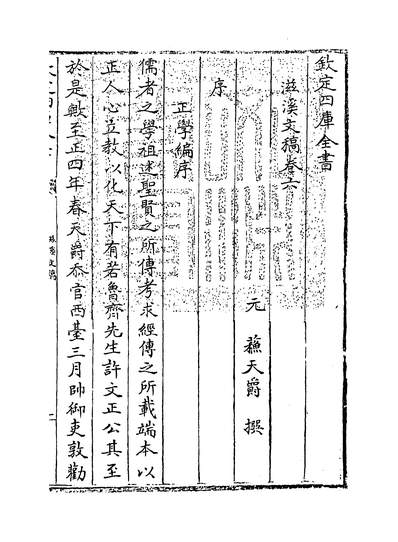 欽定四庫全書
滋溪文稿卷六
元 蘇天爵 撰
序
正學編序
儒者之學祖述聖賢之所傳考求經傳之所載端本以
正人心立教以化天下有若魯齊先生許文正公其至
於是歟至正四年春天爵忝官西臺三月帥御吏敦勸
滋溪文稿
一